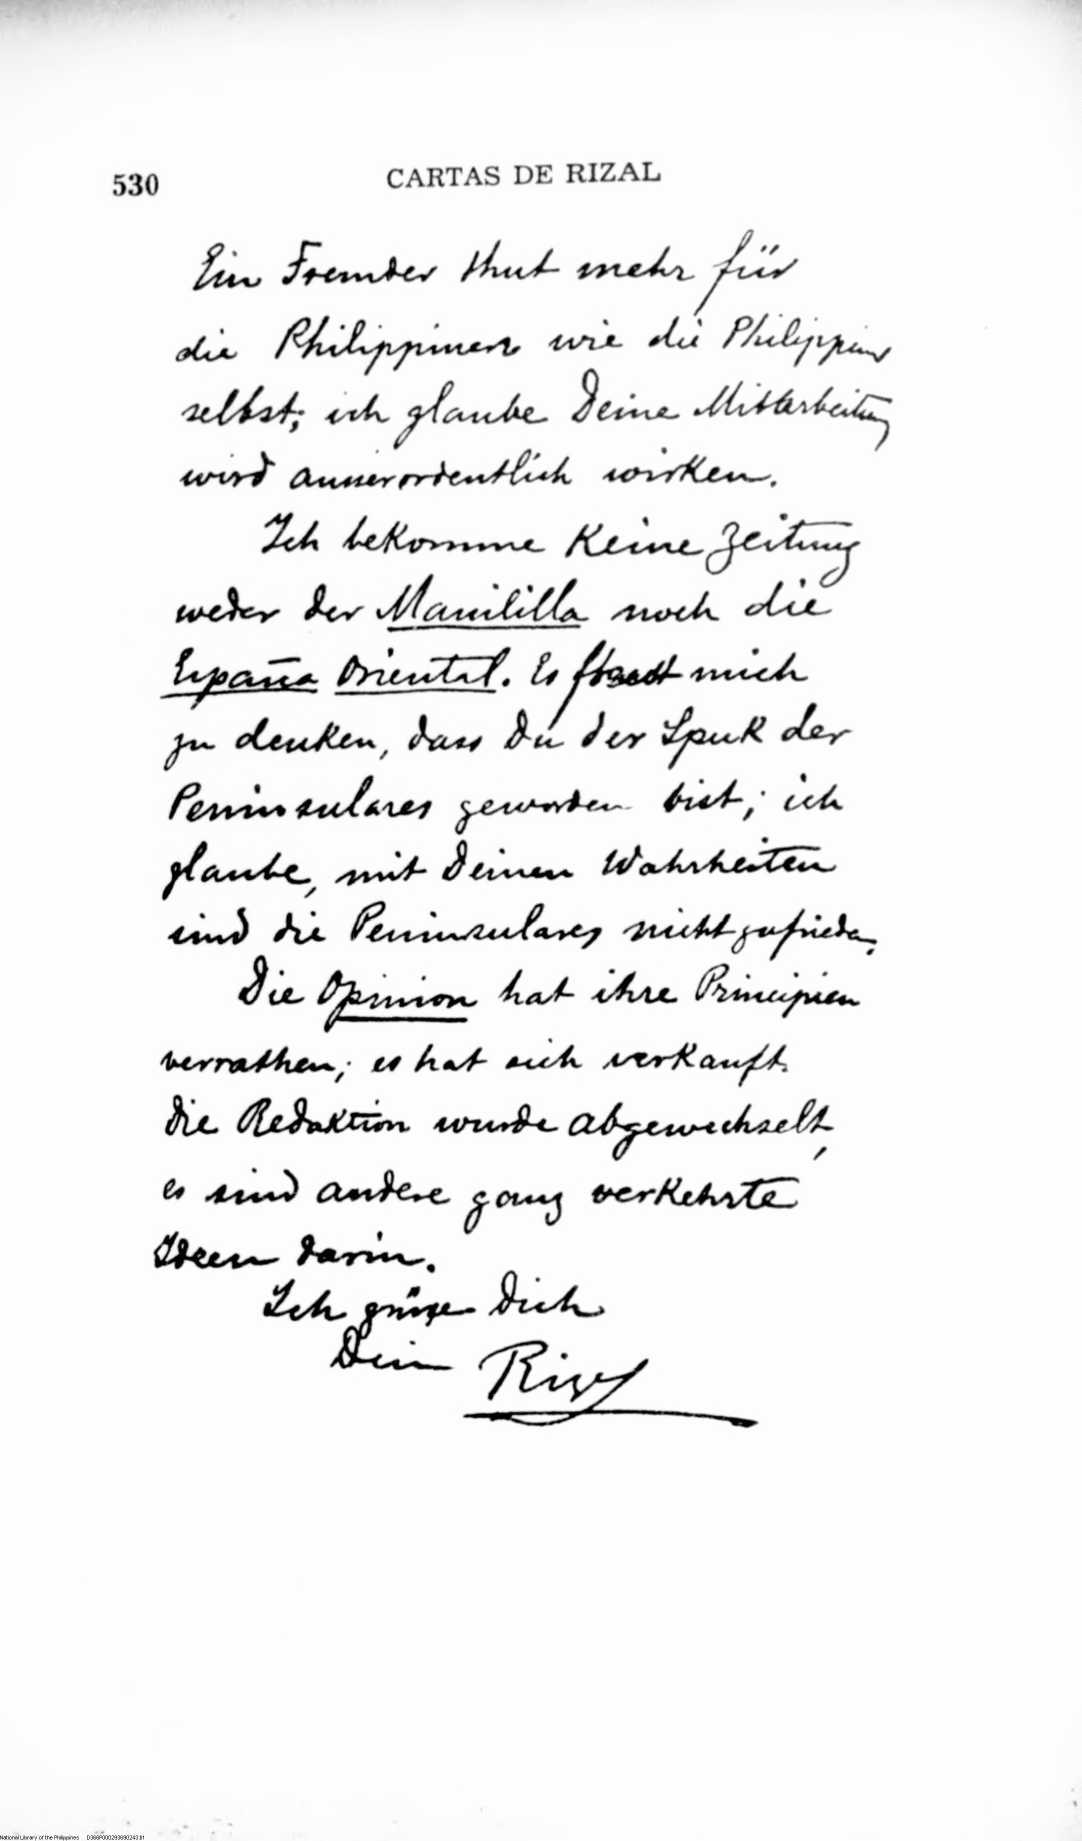 530 CARTAS DE RIZAL
Ein Fremder thut mehr für
die Philippinen wie die Philippiner
selbst; ich glaube Deine Mittarbeitung
wird ausserordentlich wirken.
Ich bekomme Keine Zeitung
weder der Manililla noch die
España Oriental. Es mich
zu denken, dass Du der Spuk der
Peninsulares geworden bist; ich
glaube, mit Deinen Wahrheiten
sind die Peninsulares nicht zufrieden.
Die Opinion hat ihre Principien
verrathen; es hat sich verkauft.
die Redaktion wurde abgewechselt,
es sind andere ganz verkehrte
Ideen darin.
Ich grüsse Dich
Dein Rizal
National Library of the Philippines